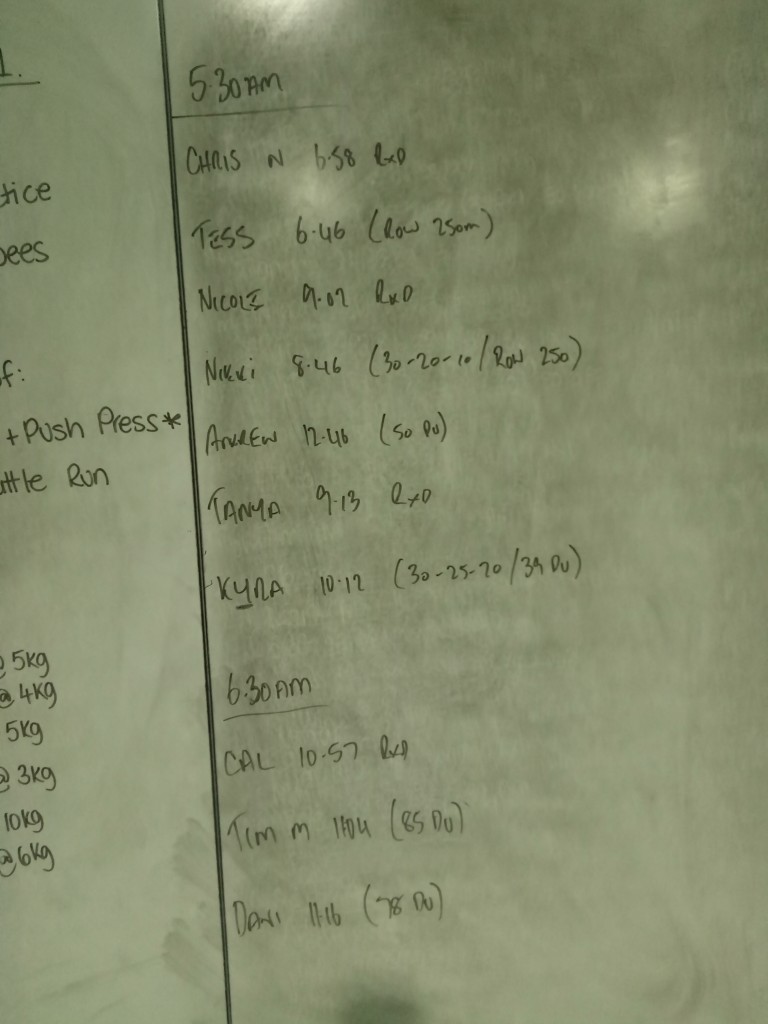 1.
tice
pees
f:
+ Push Press*
uttle Run
@ 5kg
@ 4kg
5kg
@ 3kg
10kg
@ 6kg
5.30AM
CHRIS N 6.58 RxD
TESS 6.46 (Row 250m)
NICOLE 9.07 RxD
NIKKI 8.46 (30-20-10/Row 250)
ANDREW 12.46 (50 DU)
TANYA 9.13 RxD
KYRA 10.12 (30-25-20/39 DU)
6.30AM
CAL 10.57 RxD
TIM M 11.04 (85 DU)
DANI 11.16 (78 DU)